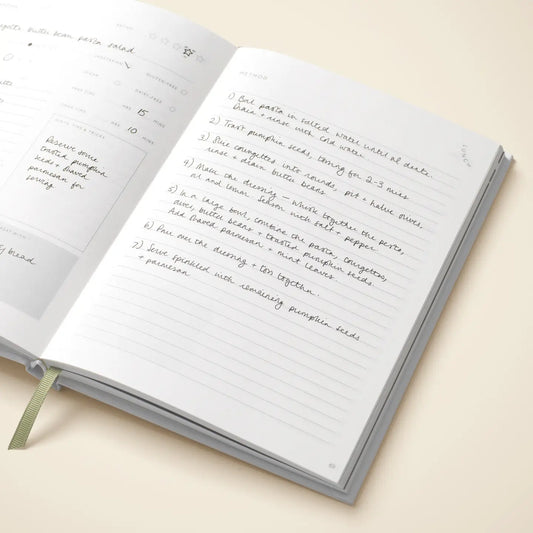 courgette butter bean pasta salad
RATING
VEGETARIAN
GLUTEN-FREE
VEGAN
DAIRY-FREE
PREP TIME
HRS 15 MINS
COOK TIME
HRS 10 MINS
Reserve some
toasted pumpkin
seeds + shaved
parmesan for
serving
bread
METHOD
1) Boil pasta in salted water until al dente.
Drain + rinse with cold water
2) Toast pumpkin seeds, tossing for 2-3 mins
3) Slice courgettes into rounds, pit + halve olives,
rinse + drain butter beans
4) Make the dressing – whisk together the pesto,
oil and lemon. Season with salt + pepper
5) In a large bowl, combine the pasta, courgettes,
olives, butter beans + toasted pumpkin seeds.
Add shaved parmesan + mint leaves
6) Pour over the dressing + toss together.
7) Serve sprinkled with remaining pumpkin seeds
+ parmesan